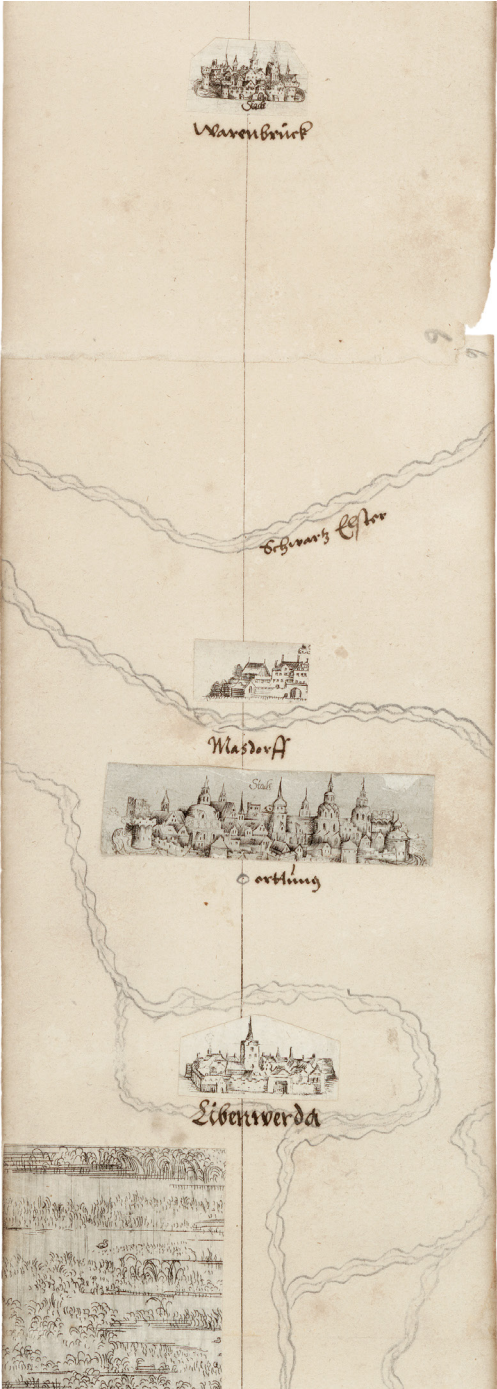 Stadt
Warenbrück
9
9
Schwartz Elster
Masdorff
Stadt
ortlung
Libenwerda